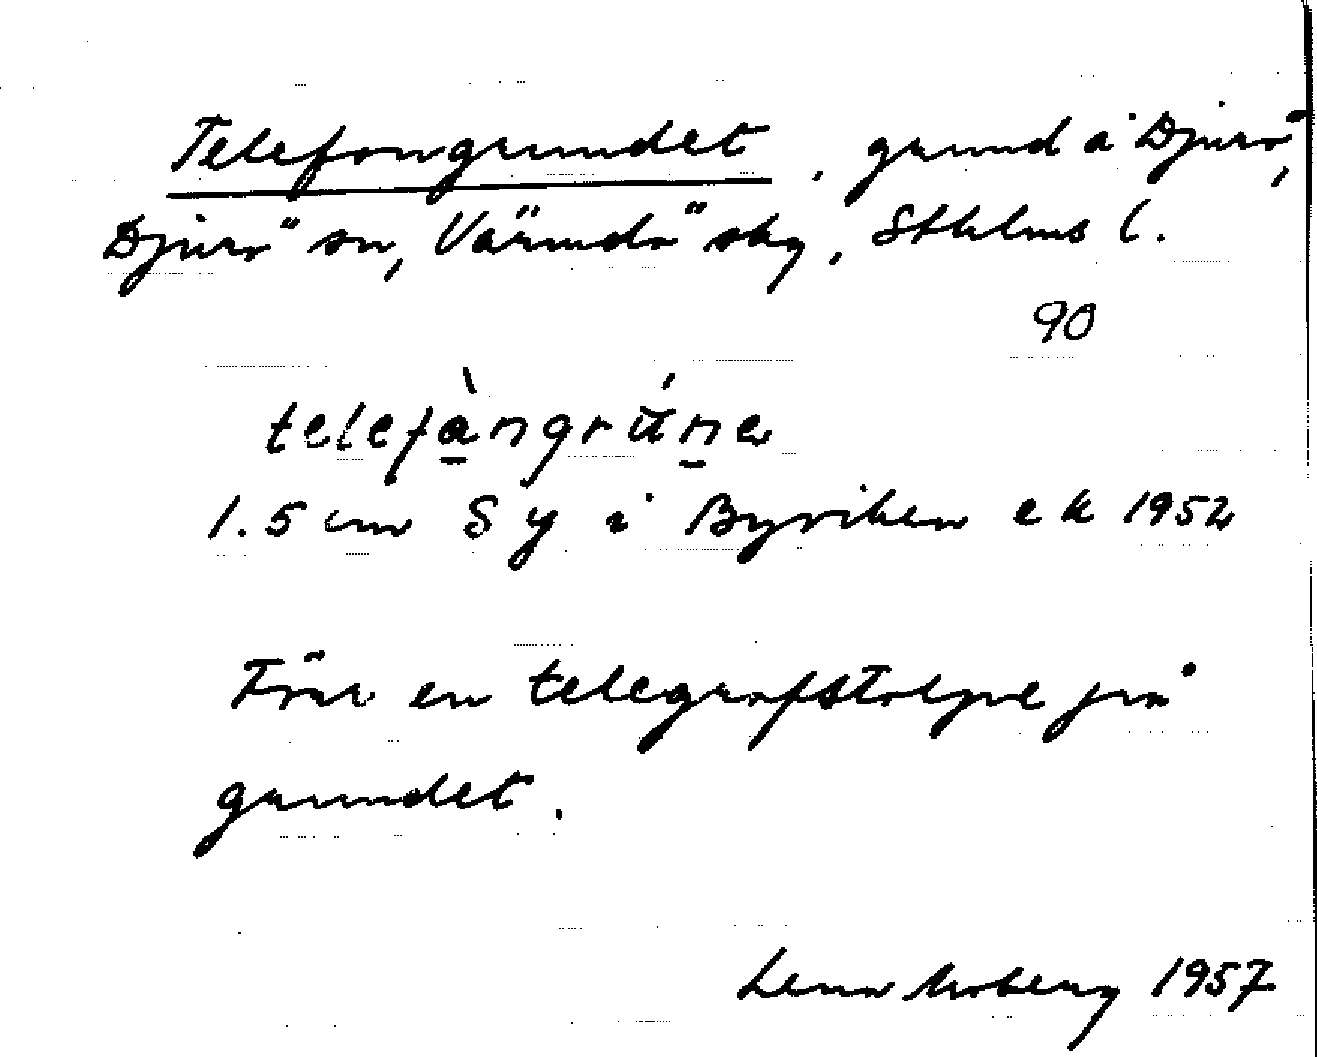 Telefongrundet, grund å Djurö,
Djurö sn, Värmdö skg, Sthlms l.
90
telefàngrúne
1.5 cm S y i Byviken e k 1952
Förr en telegrafstolpe på
grundet.
Lena Moberg 1957